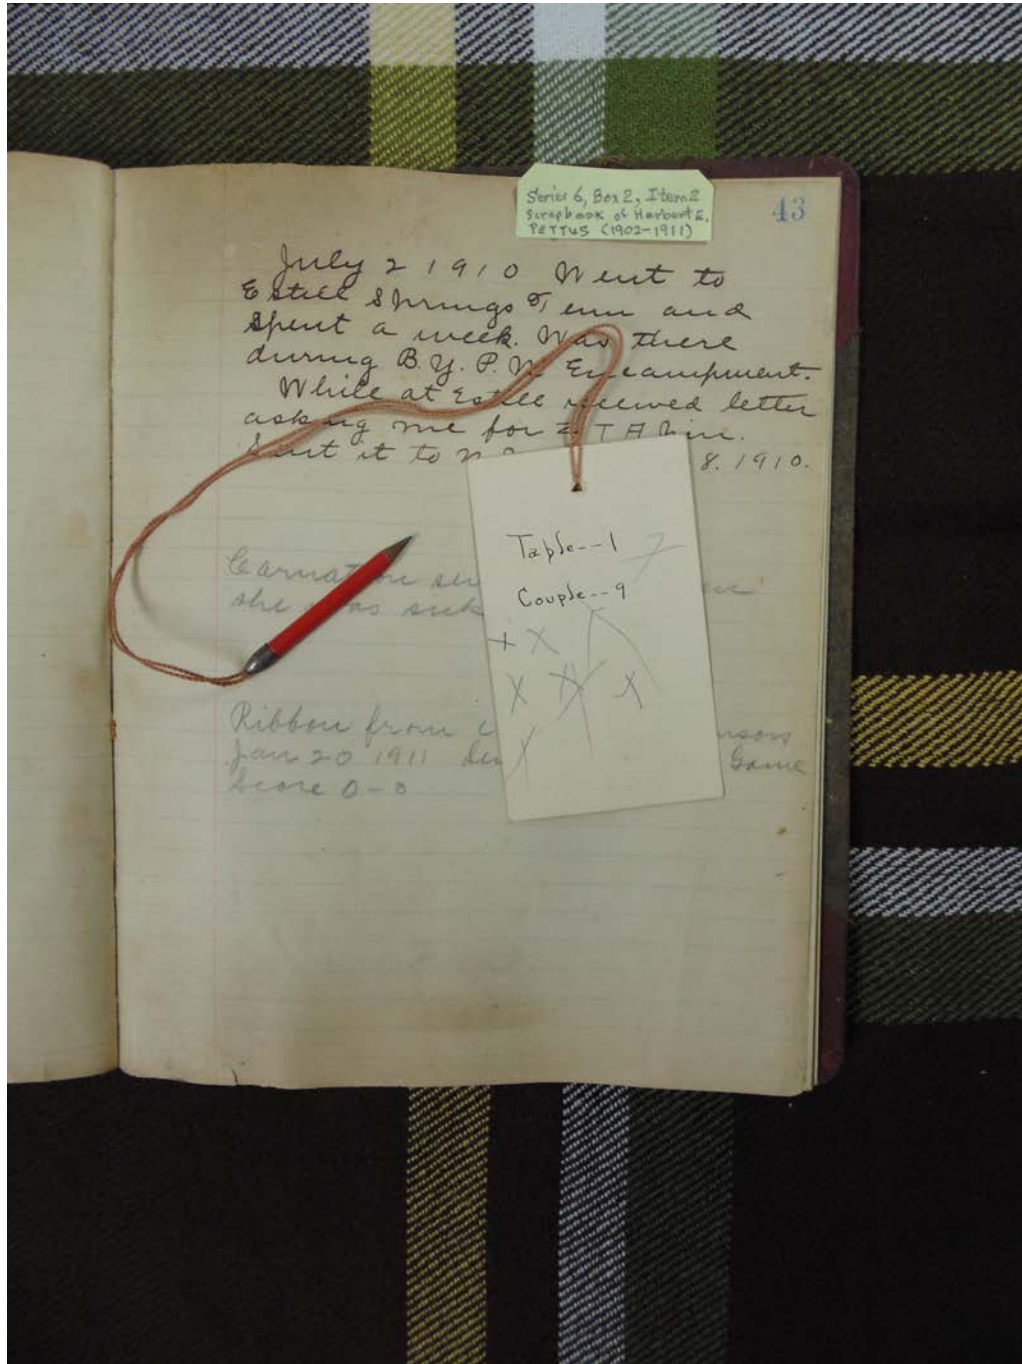 Series 6, Box 2, Item 2
Scrapbook of Harbert E.
PETTUS (1902-1911)
43
July 2 1910 Went to
Estill Springs Tenn and
spent a week. Was there
during B.Y.P.U. Encampment.
While at Estill received letter
asking me for Σ T A Pin.
Sent it to 8. 1910.
Table--1
Couple--9
Carnation
she was sick
Ribbon from
Jan 20 1911 Game
Score 0-0